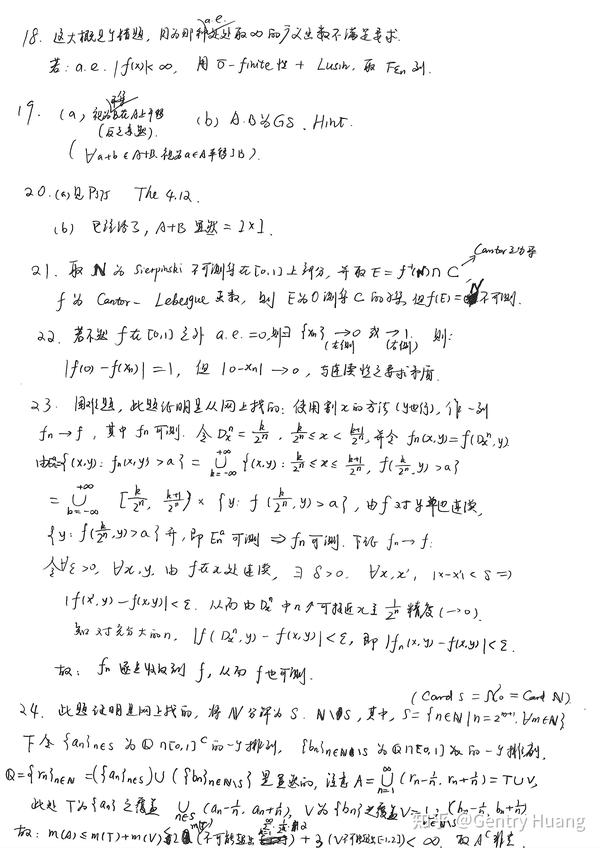 18. 这大概是个错题, 因为那种a.e.处取∞的广义函数不满足要求.
若: a.e. |f(x)|<∞, 用 σ-finite性 + Lusin. 取 F_{εn} 列.
19. (a) 视为B在A上平移 (b) A.B为Gδ. Hint.
(反之亦然).
( ∀a+b∈A+B. 视为a∈A平移了B).
20. (a) 见P375 The 4.12.
(b) 已经给了, A+B 显然 = [x].
Cantor三分集
21. 取 N 为 Sierpinski 不可测集在[0,1]上部分, 并取 E = f⁻¹(N)∩C
f 为 Cantor-Lebesgue 函数, 则 E为0测集 C 的子集, 但 f(E)=N不可测.
22. 若不然 f 在[0,1]之外 a.e. =0, 则∃{xn} →0 或 →1. 则:
(左侧) (右侧)
|f(0)-f(xn)|=1, 但 |0-xn|→0, 与连续性之要求矛盾.
23. 困难题, 此题证明是从网上找的: 使用割x的方法(y也行), 作一列
fn→f, 其中 fn可测. 令 D_x^n = k/2^n, k/2^n ≤ x < (k+1)/2^n, 并令 fn(x,y)=f(D_x^n,y)
{(x,y): fn(x,y)>a} = ⋃_{k=-∞}^{+∞} {(x,y): k/2^n ≤ x ≤ (k+1)/2^n, f(k/2^n,y)>a}
= ⋃_{k=-∞}^{+∞} [k/2^n, (k+1)/2^n) × {y: f(k/2^n,y)>a}, 由f对y单边连续,
{y: f(k/2^n,y)>a}开, 即 En^a 可测 ⇒ fn可测. 下证 fn→f:
令∀ε>0, ∀x,y, 由 f在x处连续, ∃δ>0. ∀x,x', |x-x'|<δ ⇒
|f(x',y)-f(x,y)|<ε. 从而由 D_x^n 中n↑可接近x至 1/2^n 精度(→0).
知对充分大的n, |f(D_x^n,y)-f(x,y)|<ε, 即 |fn(x,y)-f(x,y)|<ε.
故: fn逐点收敛到f, 从而f也可测.
(Card S = ℵ0 = Card N)
24. 此题证明是网上找的, 将N分解为 S. N\S, 其中, S={n∈N | n=2^{m+1}, ∀m∈N}
下令 {an}n∈S 为 Q∩[0,1]^C的一个排列, {bn}n∈N\S 为Q∩[0,1]的一个排列.
Q={rn}n∈N =({an}n∈S)∪({bn}n∈N\S) 是显然的, 注意 A=⋃_{n=1}^∞ (rn-1/n, rn+1/n)=T∪V,
此处 T为{an}之覆盖 ⋃_{n∈S} (an-1/n, an+1/n), V为{bn}之覆盖V= (bn-1/n, bn+1/n)
故: m(A)≤m(T)+m(V) +3 <∞, 故 A^C非空.
知乎 @Gentry Huang